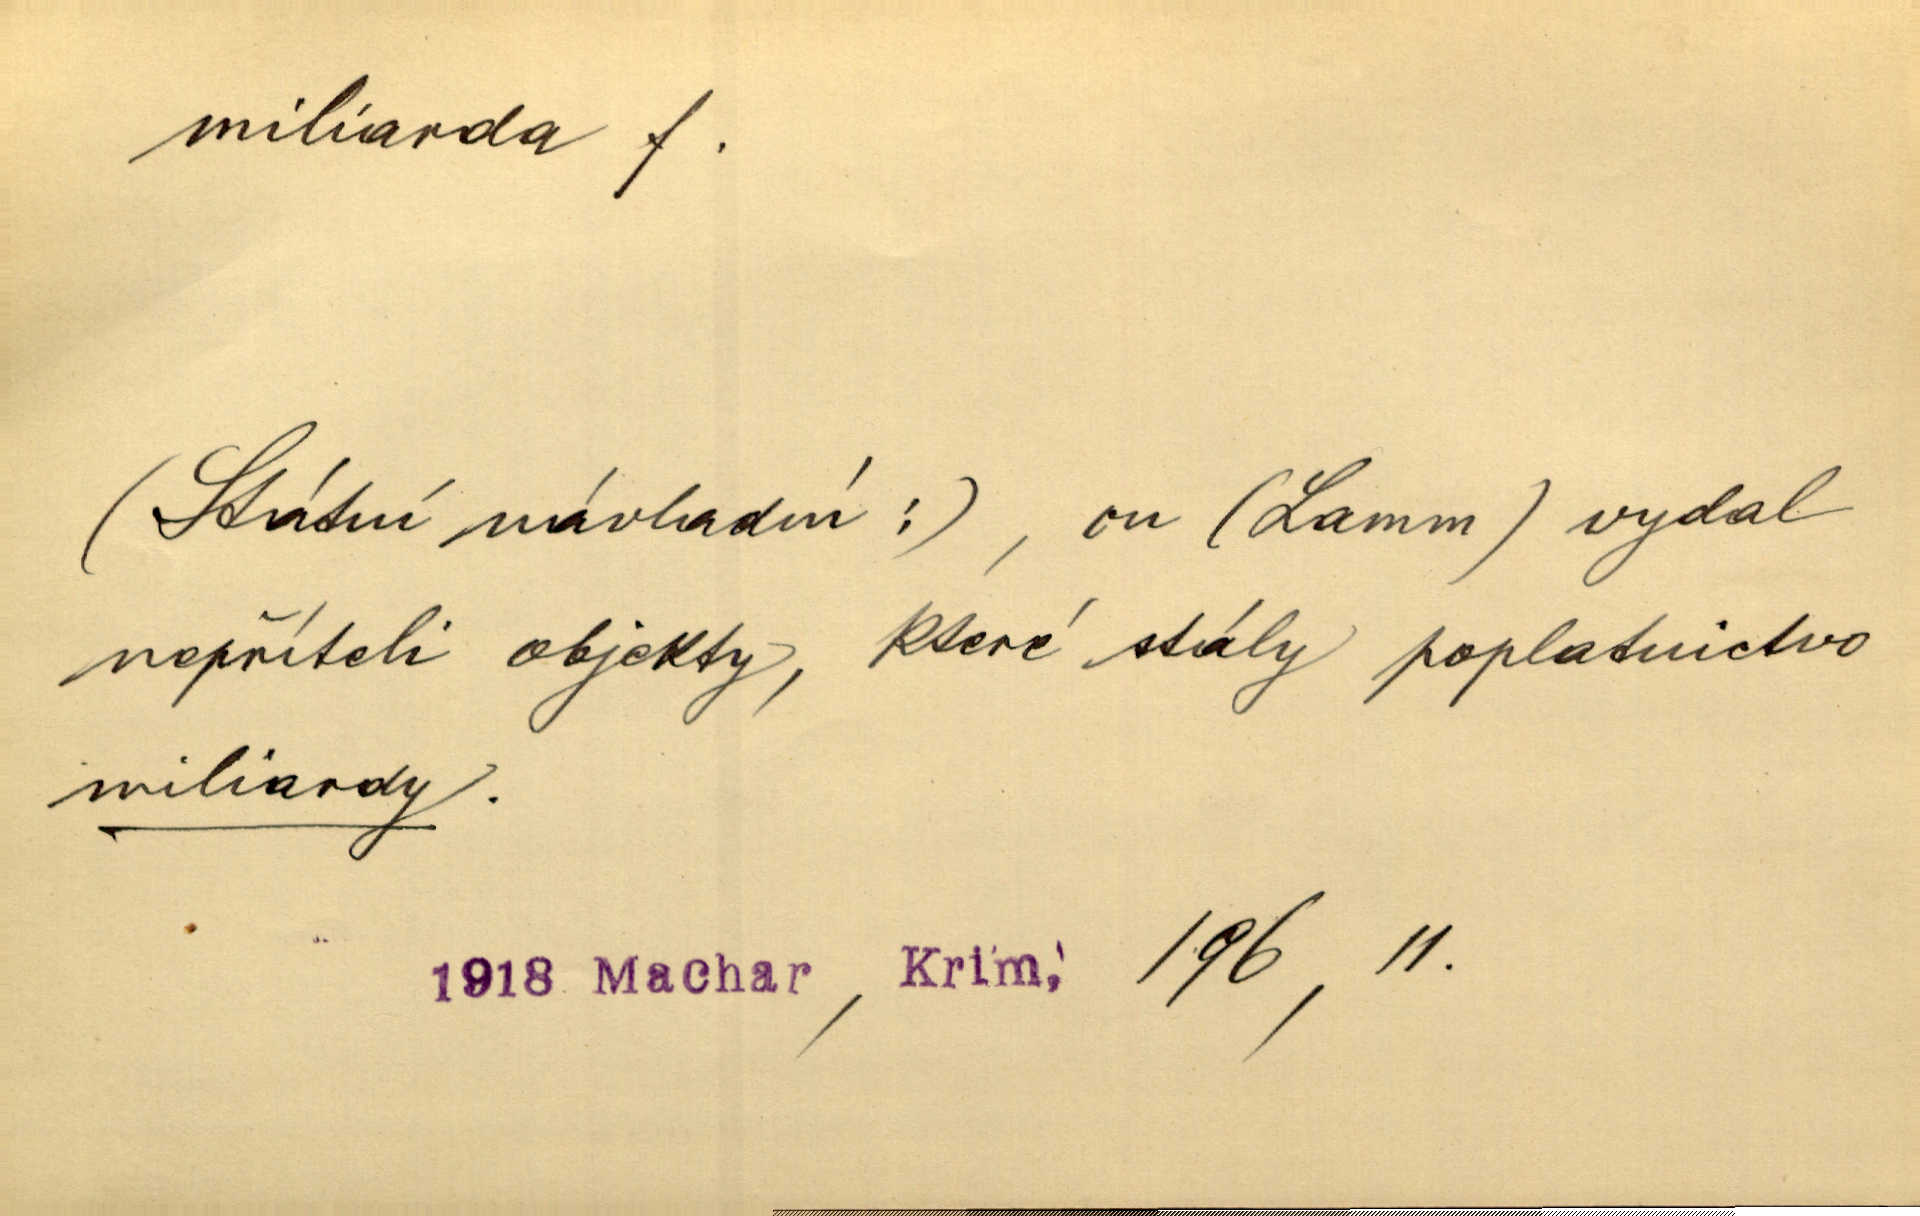 miliarda f.
(Státní návladní:), on (Lamm) vydal
nepříteli objekty, které stály poplatnictvo
miliardy.
1918 Machar, Krim, 196, 11.